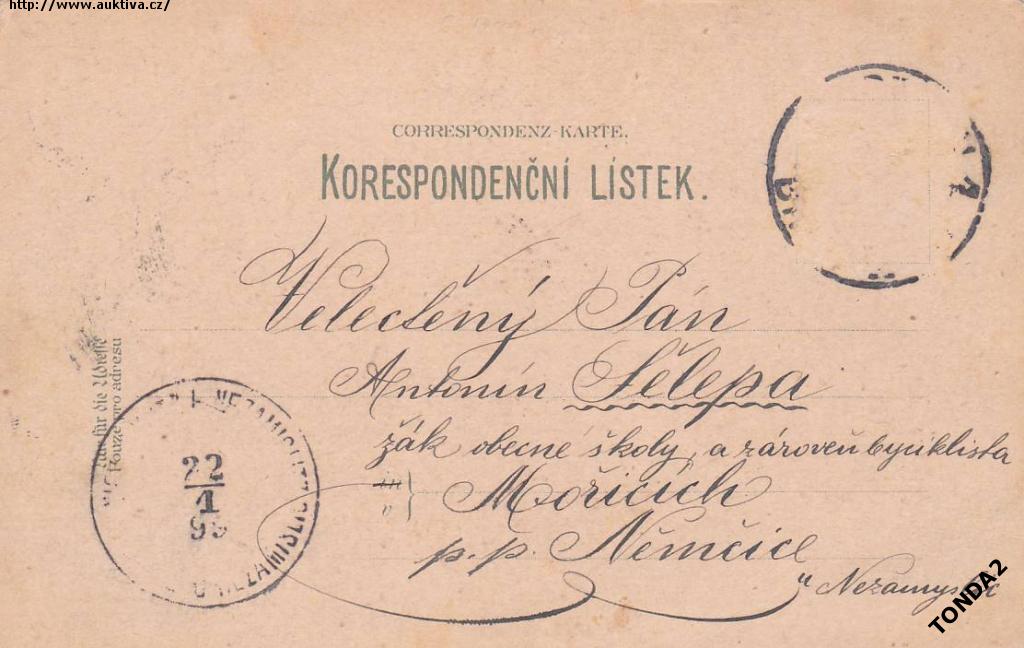 http://www.auktiva.cz/
CORRESPONDENZ-KARTE.
KORESPONDENČNÍ LÍSTEK.
Velectěný Pán
Antonín Sělepa
žák obecné školy, a zároveň byciklista
v Mořicích
p. p. Němčice
u Nezamyslic
Nur für die Adresse
Pouze pro adresu
NEZAMISLITZ
22
1
99
U NEZAMISLIC
TONDA2